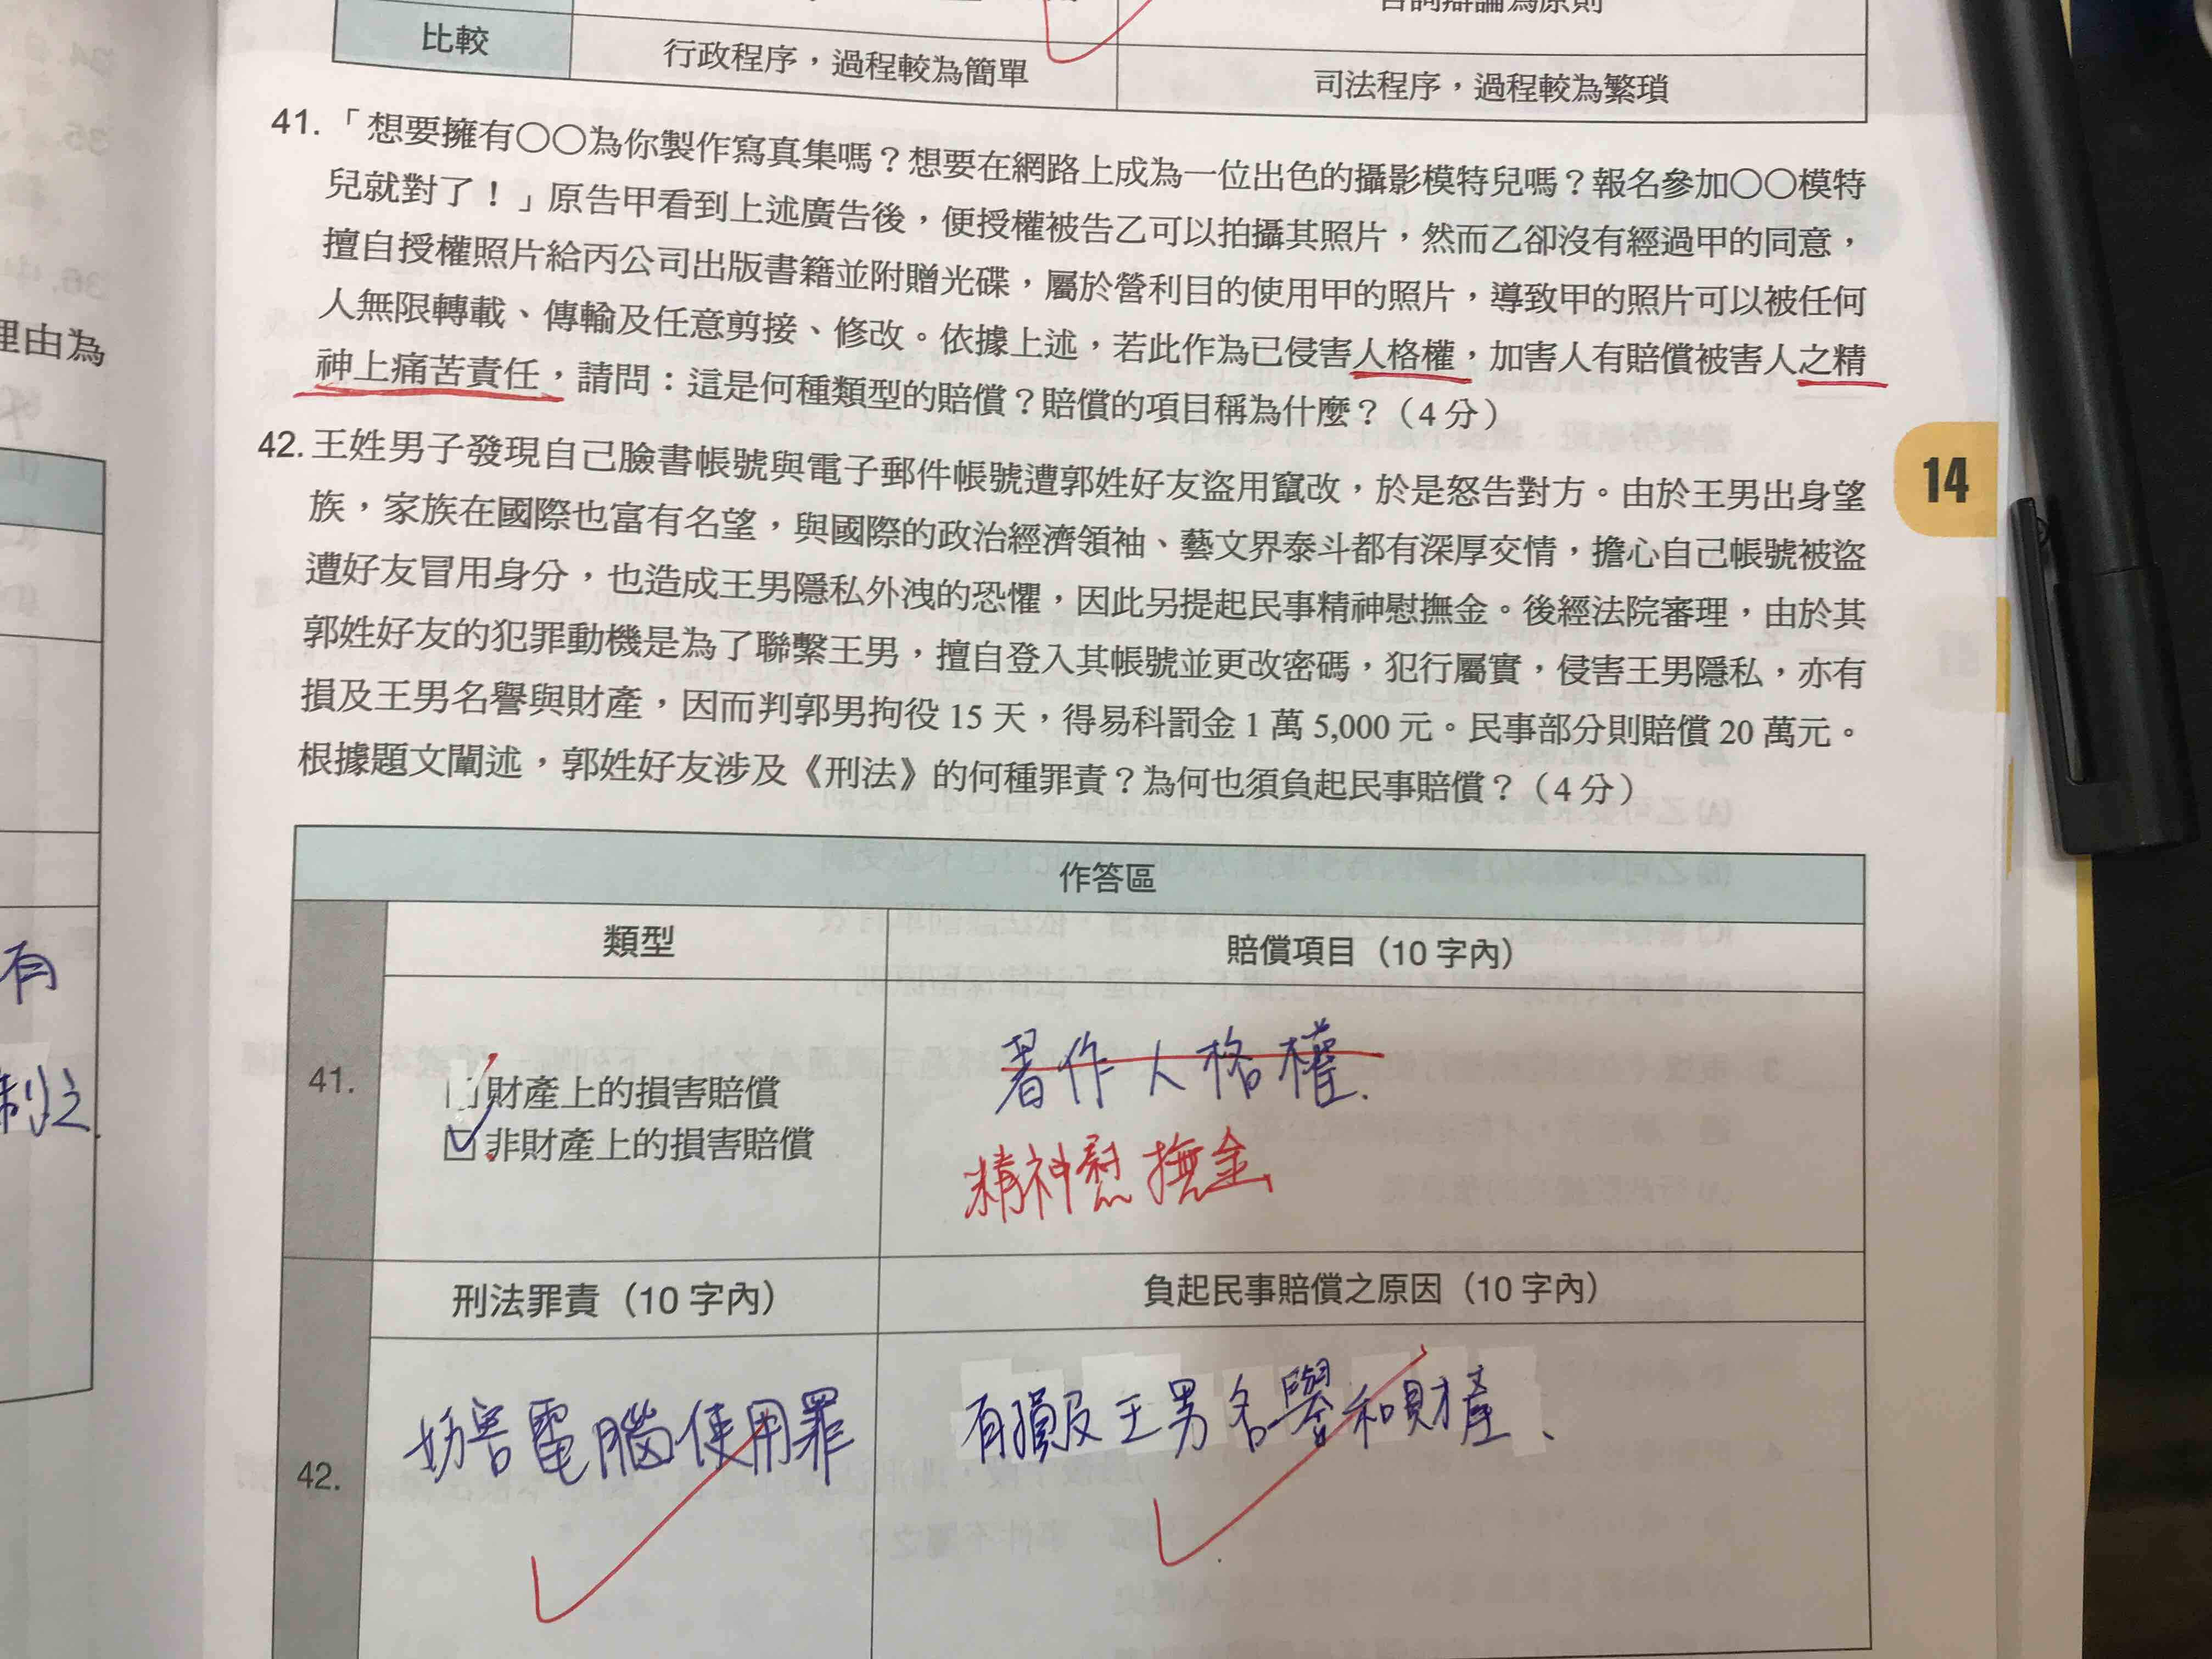 比較
行政程序，過程較為簡單
司法程序，過程較為繁瑣
41.「想要擁有〇〇為你製作寫真集嗎？想要在網路上成為一位出色的攝影模特兒嗎？報名參加〇〇模特
兒就對了！」原告甲看到上述廣告後，便授權被告乙可以拍攝其照片，然而乙卻沒有經過甲的同意，
擅自授權照片給丙公司出版書籍並附贈光碟，屬於營利目的使用甲的照片，導致甲的照片可以被任何
人無限轉載、傳輸及任意剪接、修改。依據上述，若此作為已侵害人格權，加害人有賠償被害人之精
神上痛苦責任，請問：這是何種類型的賠償？賠償的項目稱為什麼？（4 分）
42.王姓男子發現自己臉書帳號與電子郵件帳號遭郭姓好友盜用竄改，於是怒告對方。由於王男出身望
族，家族在國際也富有名望，與國際的政治經濟領袖、藝文界泰斗都有深厚交情，擔心自己帳號被盜
遭好友冒用身分，也造成王男隱私外洩的恐懼，因此另提起民事精神慰撫金。後經法院審理，由於其
郭姓好友的犯罪動機是為了聯繫王男，擅自登入其帳號並更改密碼，犯行屬實，侵害王男隱私，亦有
損及王男名譽與財產，因而判郭男拘役 15 天，得易科罰金 1 萬 5,000 元。民事部分則賠償 20 萬元。
根據題文闡述，郭姓好友涉及《刑法》的何種罪責？為何也須負起民事賠償？（4 分）
14
作答區
類型
賠償項目（10 字內）
41.
財產上的損害賠償
非財產上的損害賠償
著作人格權.
精神慰撫金
刑法罪責（10 字內）
負起民事賠償之原因（10 字內）
42.
妨害電腦使用罪
有損及王男名譽和財產、
理由為
有
制之